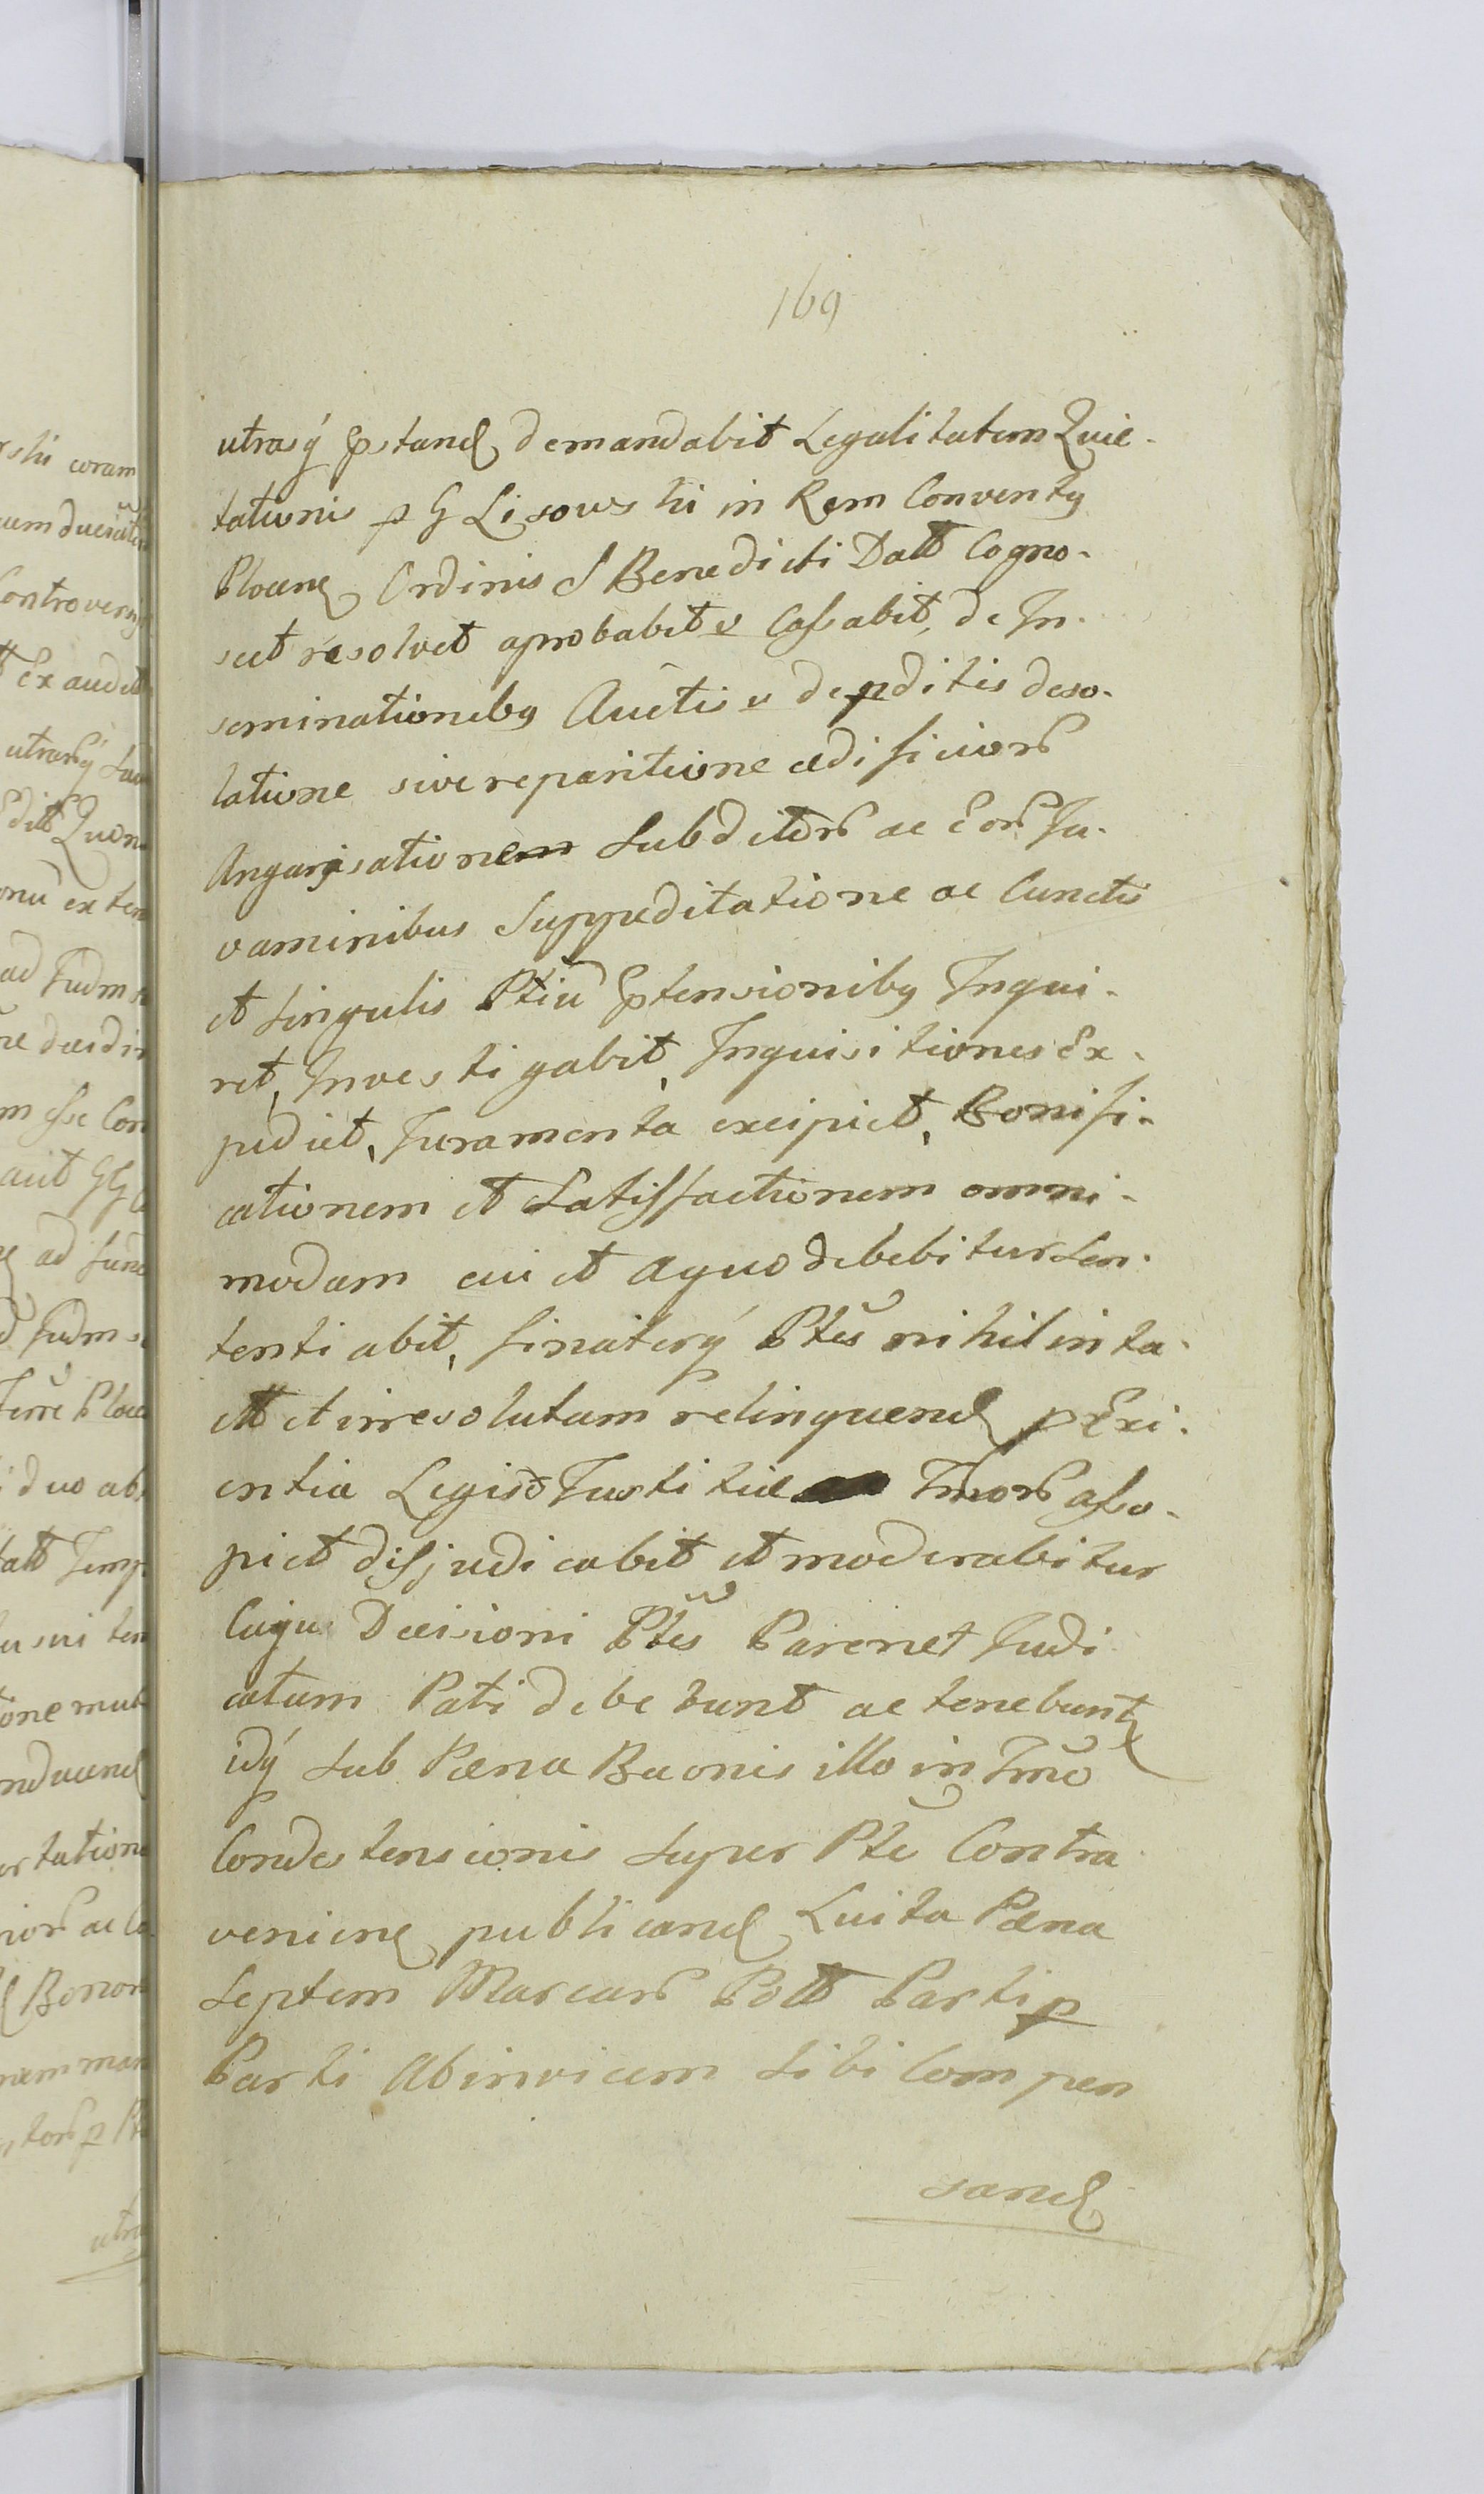 169
utrasq̃ pstand demandabit Legalitatem Quie-
tationis p G Lisowski in Rem Conventus
Plocens Ordinis S Benedicti Datt Cogno-
scet resolvet aprobabit v Cassabit, de In-
seminationibus Auctis v depditis deso-
latione sive reparitione ædificiors
Angarisatione Subditors ac Eors Ju-
vaminibus Suppeditatione ac Cunctis
et singulis Ptiũ Ptensionibus Inqui-
ret, Investigabit, Inquisitiones Ex-
pediet, Juramenta excipiet, Bonifi-
cationem et Satisfactionem omni-
modam cui et aquo debebitur Sen-
tentiabit, finaliterq̃ Ptes nihil inta-
ctt et irresolutum relinquend p Exi-
entia Legis & Justitiæ Tmors asso-
piet disjudicabit et moderabitur
Cujus Decisioni Ptes Parere et Judi
catum Pati debebunt ac tenebunt
idq̃ sub Pæna Baonis illo in Tmõ
Condestensionis super Pte Contra
veniens publicand Luita Pæna
Septem Marcars Poll Parti p
Parti Abinvicem sibi Compen
sand